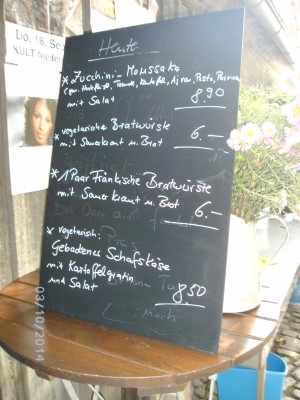 Do, 18. Se
KULT Nürden
Heute...
* Zucchini-Moussaka
(gem. Hackfleisch, Tomate, Kartoffel, Ajvar, Pesto, Parmesan
mit Salat 8,90
* vegetarische Bratwürste
mit Sauerkraut u. Brot 6.-
* 1 Paar Fränkische Bratwürste
mit Sauerkraut u. Brot 6.-
* vegetarisch:
Gebackenes Schafskäse
mit Kartoffelgratin
und Salat 8,50
03/10/2014